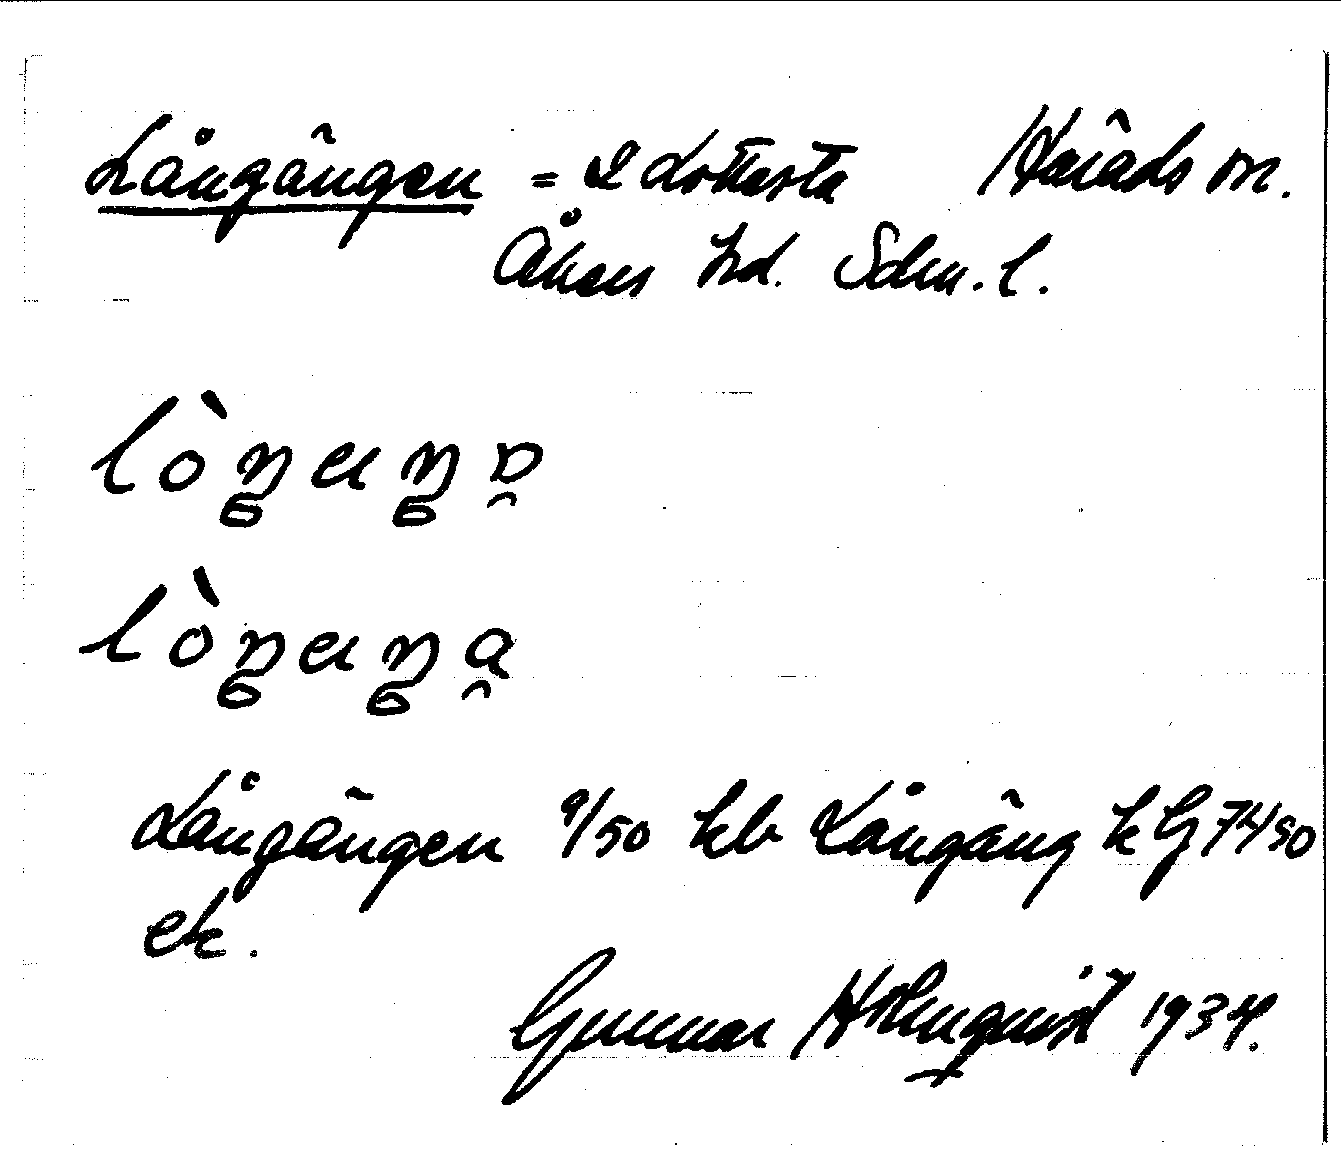 Långången = 2 Lottersta Härads sn.
Åkers hd. Sdm. l.
lòŋaŋa
Långången 9/50 kb Långång kG 74/50
etc.
Gunnar Holmquist 1934.